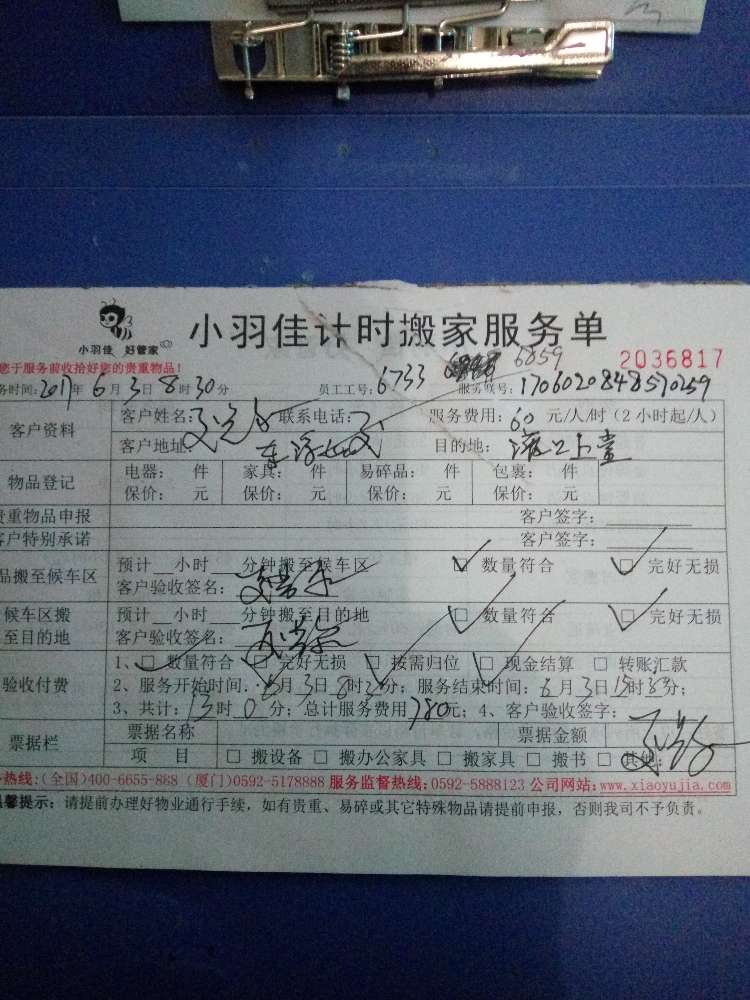 小羽佳 好管家
小羽佳计时搬家服务单
您于服务前收拾好您的贵重物品!
2036817
务时间:2017年6月3日8时30分 员工工号:6733 6859 服务账号:1706020848570259
客户资料
客户姓名: 联系电话: 服务费用:60元/人/时(2小时起/人)
客户地址: 目的地:
物品登记
电器: 件 家具: 件 易碎品: 件 包裹: 件
保价: 元 保价: 元 保价: 元 保价: 元
贵重物品申报 客户签字:
客户特别承诺 客户签字:
品搬至候车区
预计__小时__分钟搬至候车区 □ 数量符合 □ 完好无损
客户验收签名:
候车区搬至目的地
预计__小时__分钟搬至目的地 □ 数量符合 □ 完好无损
客户验收签名:
验收付费
1、□ 数量符合 □ 完好无损 □ 按需归位 □ 现金结算 □ 转账汇款
2、服务开始时间:6月3日8时 分;服务结束时间:6月3日15时 分;
3、共计:13时0分;总计服务费用780元;4、客户验收签字:
票据栏
票据名称 票据金额
项 目 □ 搬设备 □ 搬办公家具 □ 搬家具 □ 搬书 □ 其他:
热线:(全国)400-6655-868 (厦门)0592-5178888 服务监督热线:0592-5888123 公司网站:www.xiaoyujia.com
温馨提示:请提前办理好物业通行手续,如有贵重、易碎或其它特殊物品请提前申报,否则我司不予负责。